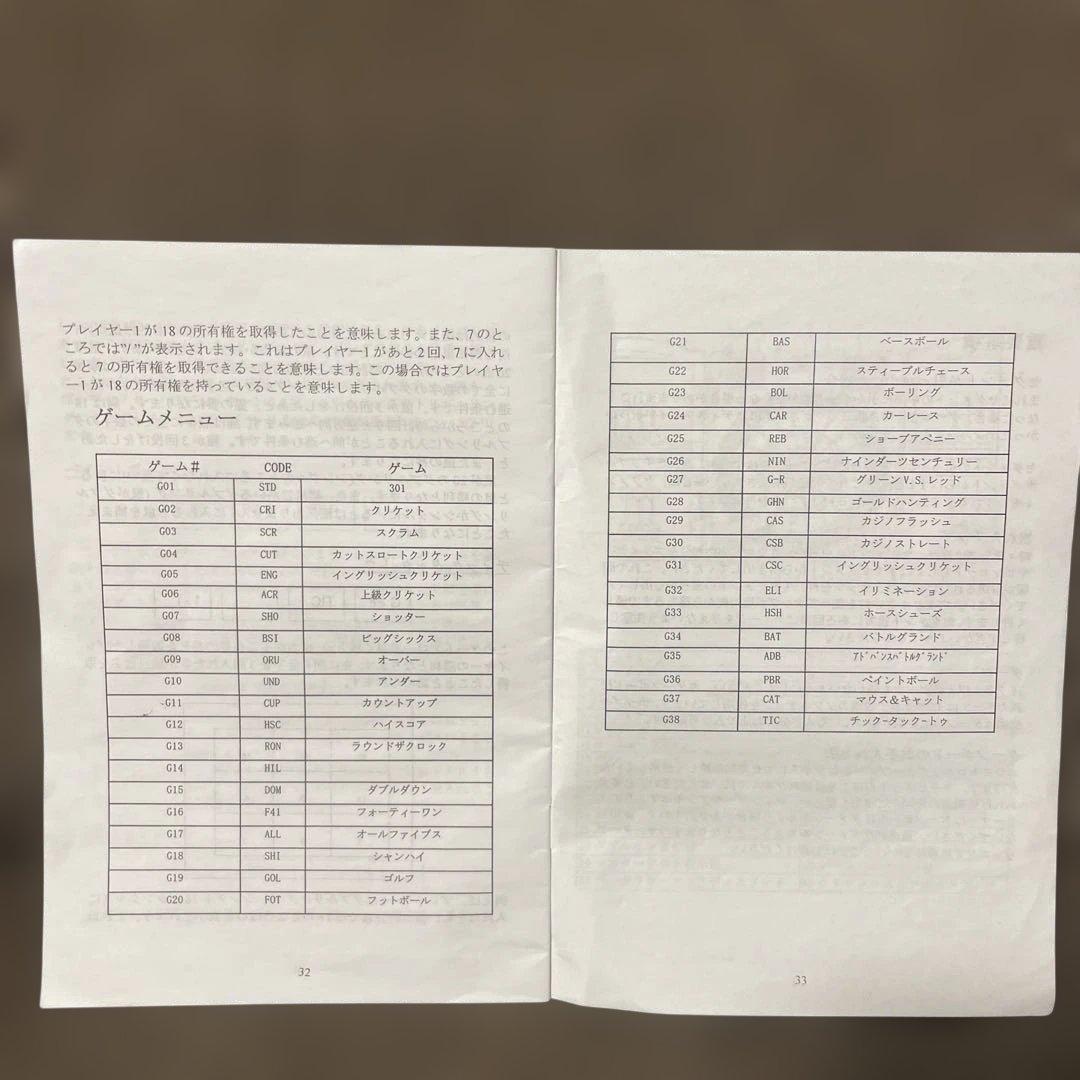 プレイヤー1が18の所有権を取得したことを意味します。また、7のと
ころでは"/ "が表示されます。これはプレイヤー1があと2回、7に入れ
ると7の所有権を取得できることを意味します。この場合ではプレイヤ
ー1が18の所有権を持っていることを意味します。
ゲームメニュー
ゲーム# CODE ゲーム
G01 STD 301
G02 CRI クリケット
G03 SCR スクラム
G04 CUT カットスロートクリケット
G05 ENG イングリッシュクリケット
G06 ACR 上級クリケット
G07 SHO ショッター
G08 BSI ビッグシックス
G09 ORU オーバー
G10 UND アンダー
G11 CUP カウントアップ
G12 HSC ハイスコア
G13 RON ラウンドザクロック
G14 HIL
G15 DOM ダブルダウン
G16 F41 フォーティーワン
G17 ALL オールファイブス
G18 SHI シャンハイ
G19 GOL ゴルフ
G20 FOT フットボール
32
G21 BAS ベースボール
G22 HOR スティープルチェース
G23 BOL ボーリング
G24 CAR カーレース
G25 REB ショーブアペニー
G26 NIN ナインダーツセンチュリー
G27 G-R グリーンV.S.レッド
G28 GHN ゴールドハンティング
G29 CAS カジノフラッシュ
G30 CSB カジノストレート
G31 CSC イングリッシュクリケット
G32 ELI イリミネーション
G33 HSH ホースシューズ
G34 BAT バトルグランド
G35 ADB ｱﾄﾞﾊﾞﾝｽﾊﾞﾄﾙｸﾞﾗﾝﾄﾞ
G36 PBR ペイントボール
G37 CAT マウス&キャット
G38 TIC チック-タック-トゥ
33